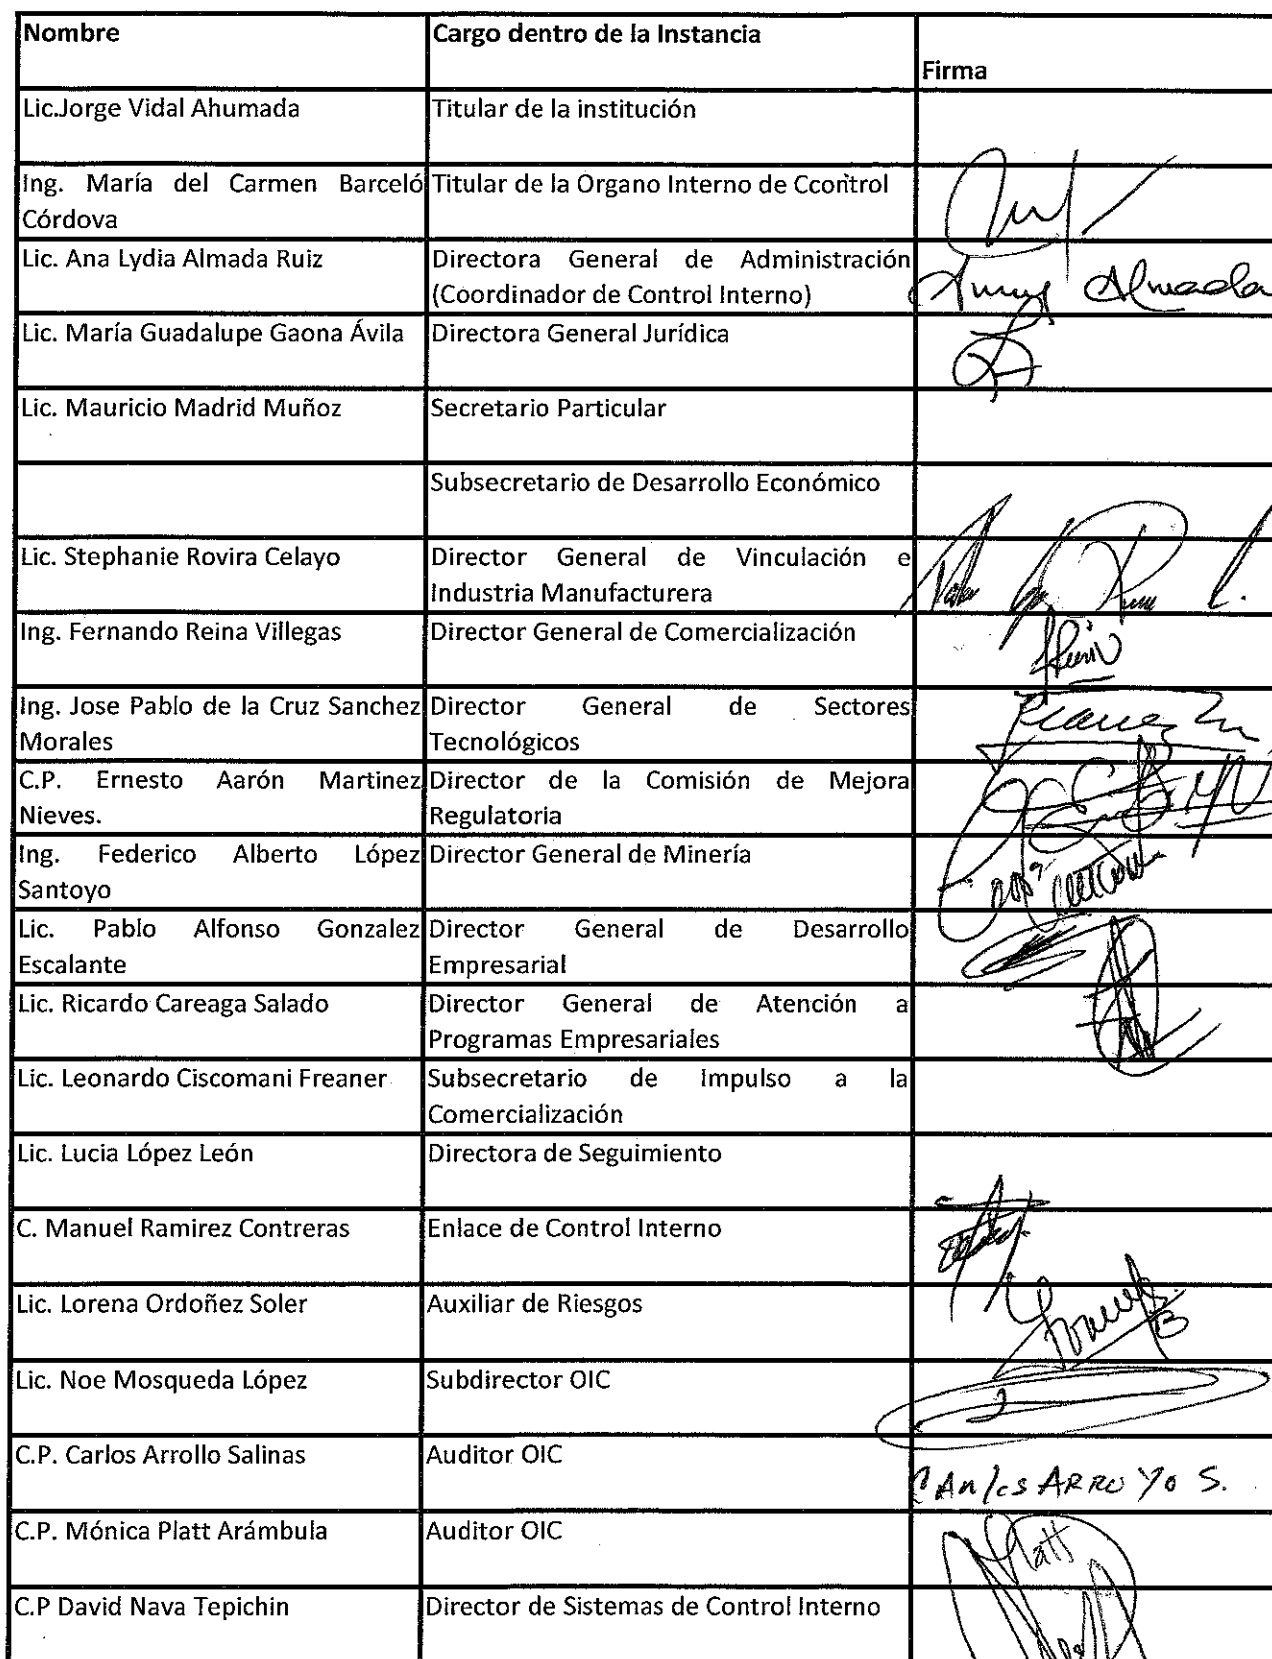 Nombre Cargo dentro de la Instancia
Firma
Lic.Jorge Vidal Ahumada Titular de la institución
Ing. María del Carmen Barceló Titular de la Organo Interno de Ccontrol
Córdova
Lic. Ana Lydia Almada Ruiz Directora General de Administración
(Coordinador de Control Interno) Almada
Lic. María Guadalupe Gaona Ávila Directora General Jurídica
Lic. Mauricio Madrid Muñoz Secretario Particular
Subsecretario de Desarrollo Económico
Lic. Stephanie Rovira Celayo Director General de Vinculación e
Industria Manufacturera
Ing. Fernando Reina Villegas Director General de Comercialización
Ing. Jose Pablo de la Cruz Sanchez Director General de Sectores
Morales Tecnológicos
C.P. Ernesto Aarón Martinez Director de la Comisión de Mejora
Nieves. Regulatoria
Ing. Federico Alberto López Director General de Minería
Santoyo
Lic. Pablo Alfonso Gonzalez Director General de Desarrollo
Escalante Empresarial
Lic. Ricardo Careaga Salado Director General de Atención a
Programas Empresariales
Lic. Leonardo Ciscomani Freaner Subsecretario de Impulso a la
Comercialización
Lic. Lucia López León Directora de Seguimiento
C. Manuel Ramirez Contreras Enlace de Control Interno
Lic. Lorena Ordoñez Soler Auxiliar de Riesgos
Lic. Noe Mosqueda López Subdirector OIC
C.P. Carlos Arrollo Salinas Auditor OIC
CARLOS ARROYO S.
C.P. Mónica Platt Arámbula Auditor OIC
Platt
C.P David Nava Tepichin Director de Sistemas de Control Interno